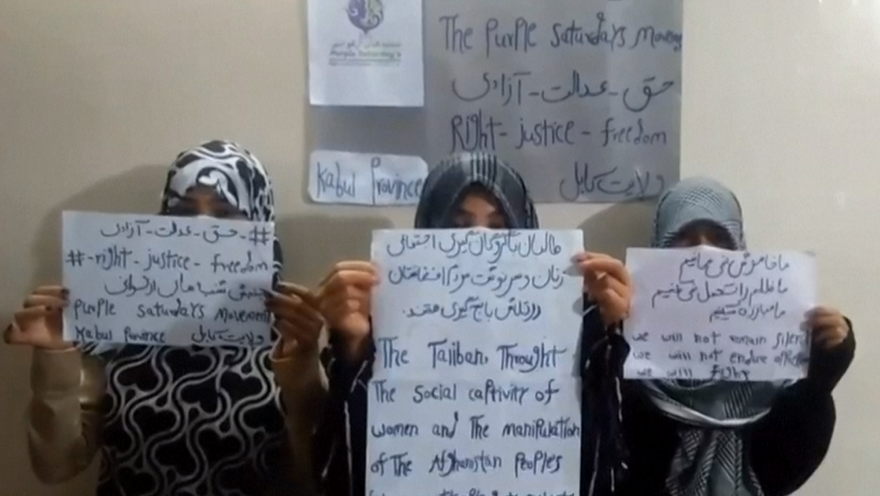 The Purple Saturdays Movem
حق - عدالت - آزادی
Right - justice - freedom
ولایت کابل
Kabul Province
# - حق - عدالت - آزادی
# - right - justice - freedom
جنبش شنبه های ارغوانی
Purple Saturdays Movement
Kabul Province ولایت کابل
طالبان با گروگان گیری اجتماعی
زنان و مردم افغانستان
در تلاش باج گیری هستند.
The Taliban, Throught
The social captivity of
women and The manipulation
of The Afghanistan Peoples
ما خاموش نمی مانیم
ما ظلم را تحمل نمی کنیم
ما مبارزه میکنیم
we will not remain silen
we will not endure
we will fight